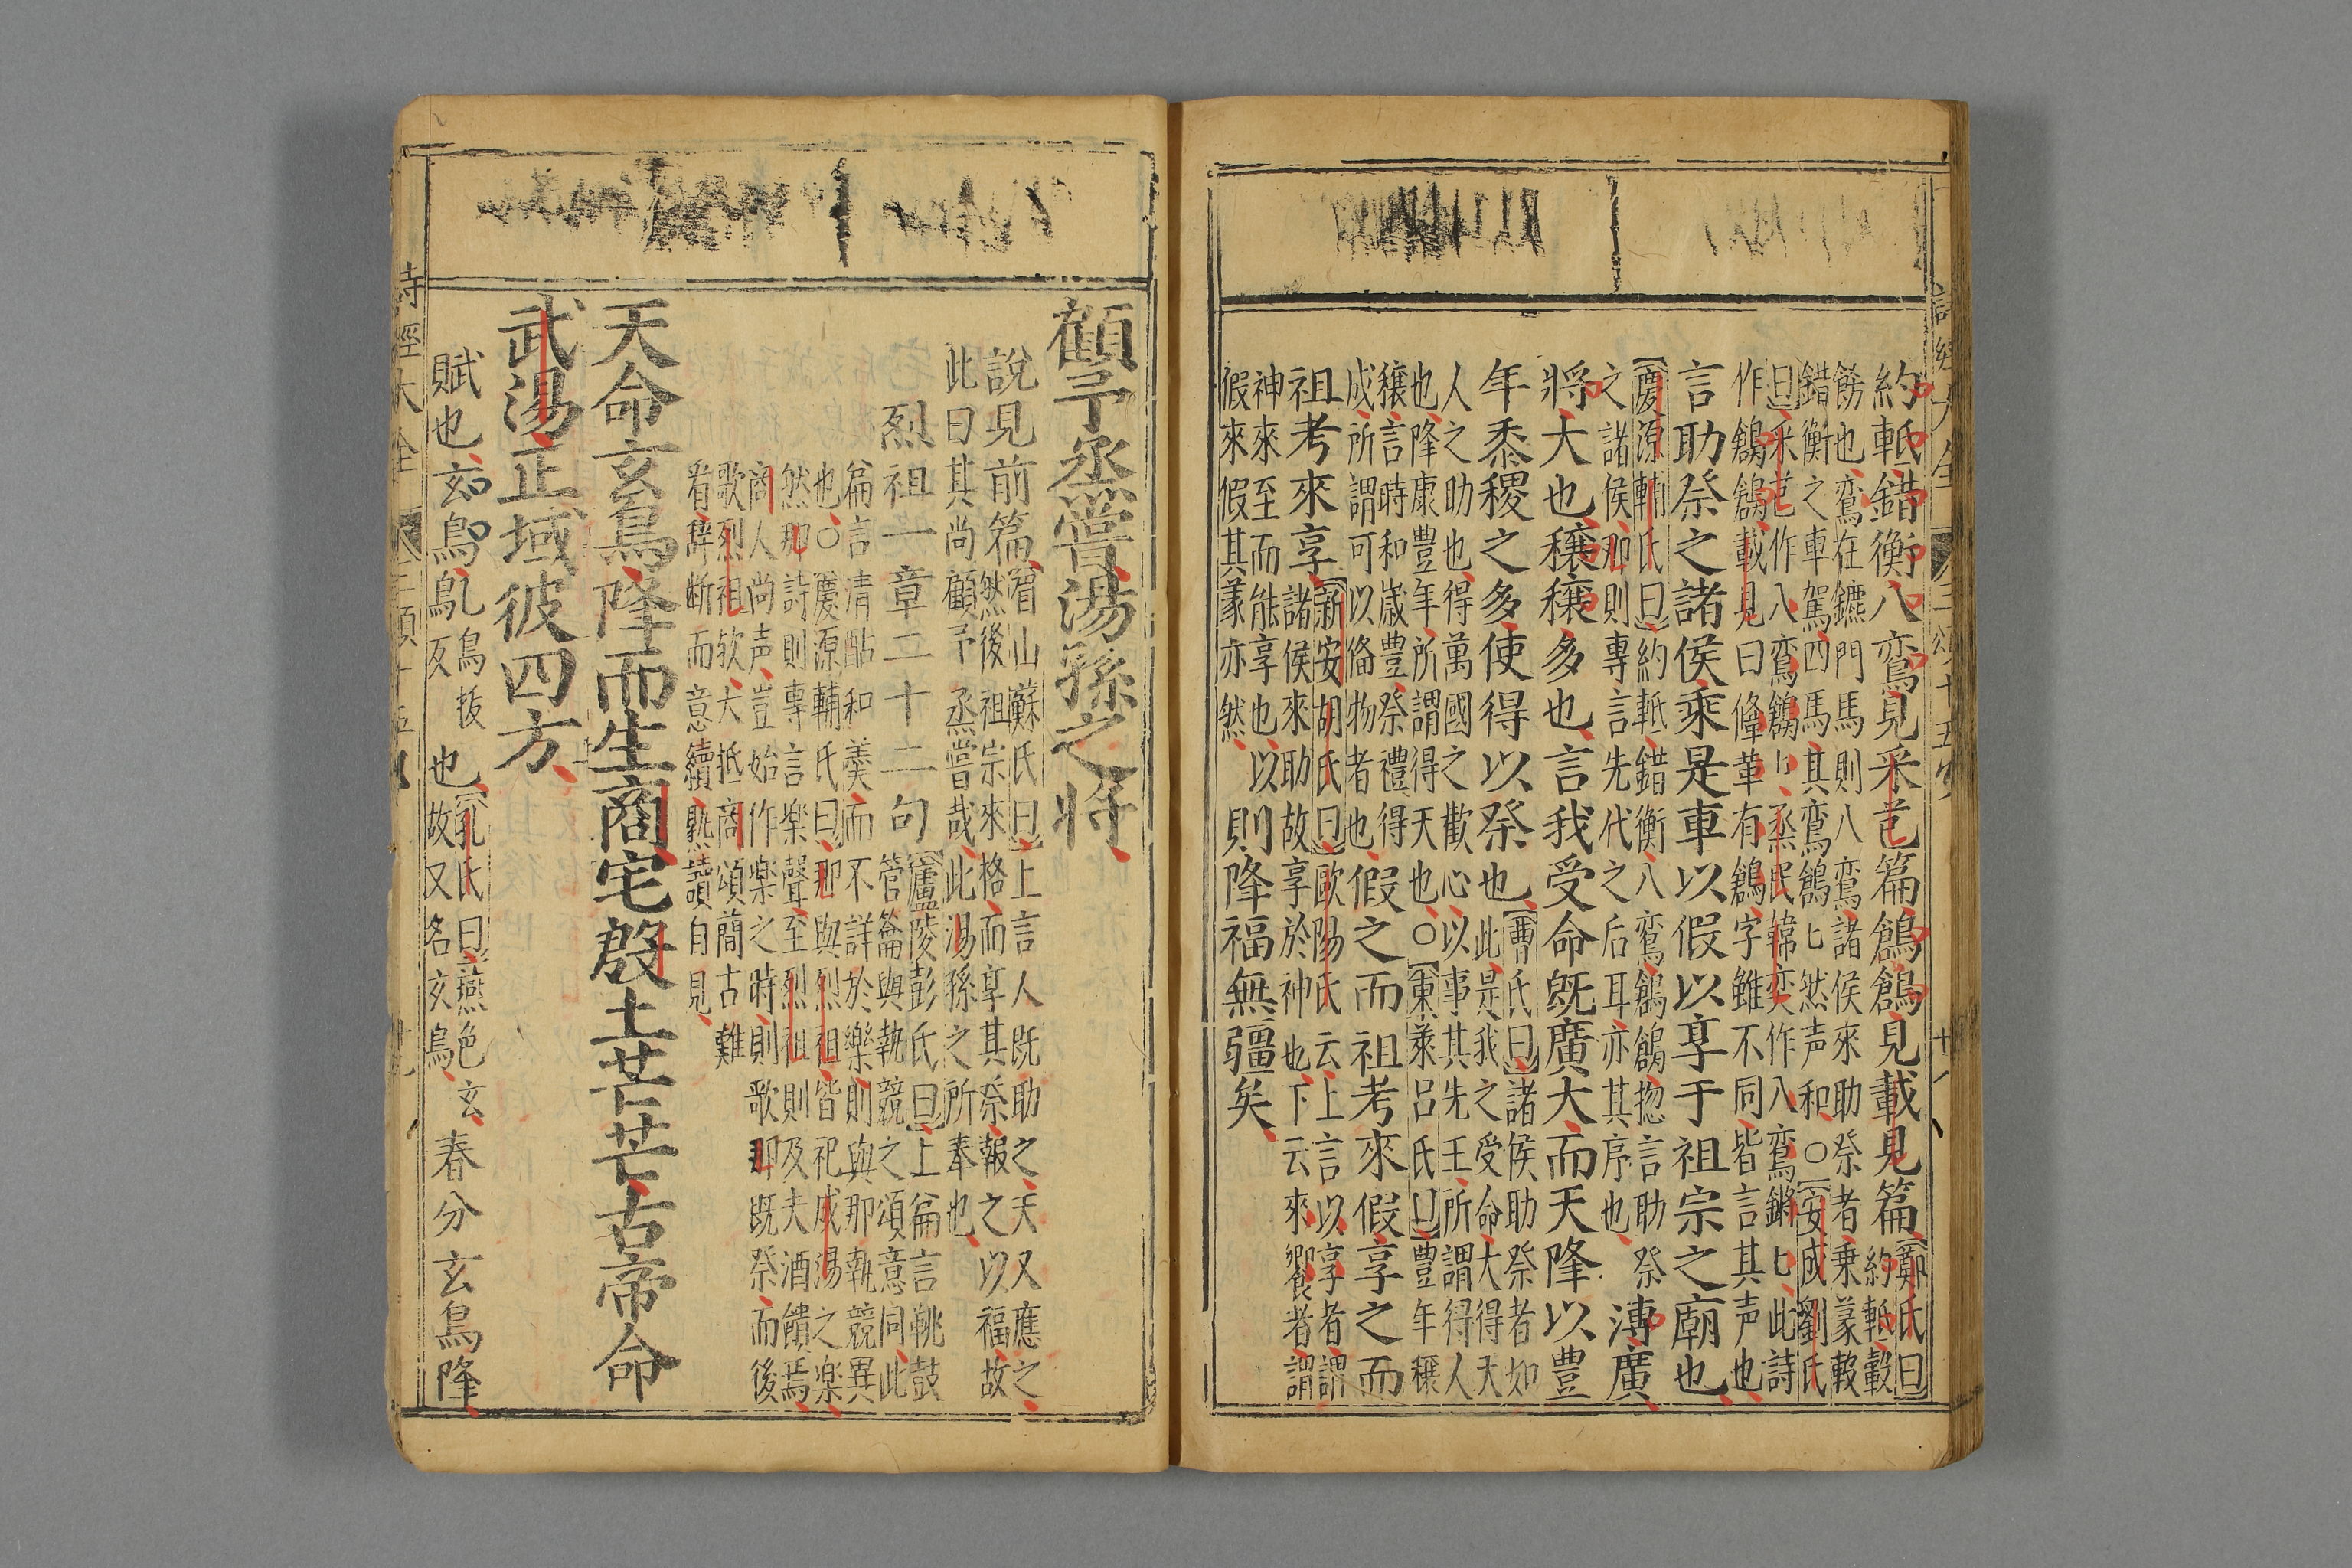 約軝錯衡八鸞見采芑篇鶬鶬見載見篇
鄭氏曰約軝轂
餙也鸞在鑣四馬則八鸞諸侯來助祭者乗篆轂
錯衡之車駕四馬其鸞鶬匕然声和○安成劉氏
曰采芑作八鸞鶬匕烝民韓奕作八鸞鏘匕此詩
作鶬鶬載見曰鞗革有鶬字雖不同皆言其声也
言助祭之諸侯乘是車以假以享于祖宗之廟也
慶源輔氏曰約軝錯衡八鸞鶬鶬惣言助祭
之諸侯那則專言先代之后耳亦其序也
溥廣
將大也穰穰多也言我受命既廣大而天降以豊
年黍稷之多使得以祭也
曹氏曰諸侯助祭者如
此是我之受命大得天
人之助也得萬國之歡心以事其先王所謂得人
也降康豊年所謂得天也○東萊呂氏曰豊年穰
穰言時和歲豊祭禮得
成所謂可以俻物者也
假之而祖考來假享之而
祖考來享
新安胡氏曰歐陽氏云上言以享者謂
諸侯來助故享於神也下云來饗者謂
神來至而能享也以
假來假其篆亦然
則降福無疆矣
詩經大全
三頌十五
顧予烝嘗湯孫之將
說見前篇
眉山蘇氏曰上言人既助之天又應之
然後祖宗來格而享其祭報之以福故
此曰其尚顧予烝嘗哉此湯孫之所奉也
烈祖一章二十二句
廬陵彭氏曰上篇言鞉鼓
管籥與執競之頌意同此
篇言清酤和羹而不詳於樂則與那執競異
也○慶源輔氏曰那與烈祖皆祀成湯之楽
然那詩則專言楽聲至烈祖則及夫酒饋焉
商人尚声豈始作楽之時則歌那既祭而後
歌烈祖欤大抵商頌簡古難
看辭断而意續熟讀自見
天命玄鳥降而生商宅殷土芒芒古帝命
武湯正域彼四方
賦也玄鳥鳦
鳦鳥拔反
也
孔氏曰燕色玄
故又名玄鳥
春分玄鳥降
詩經大全
三頌十五